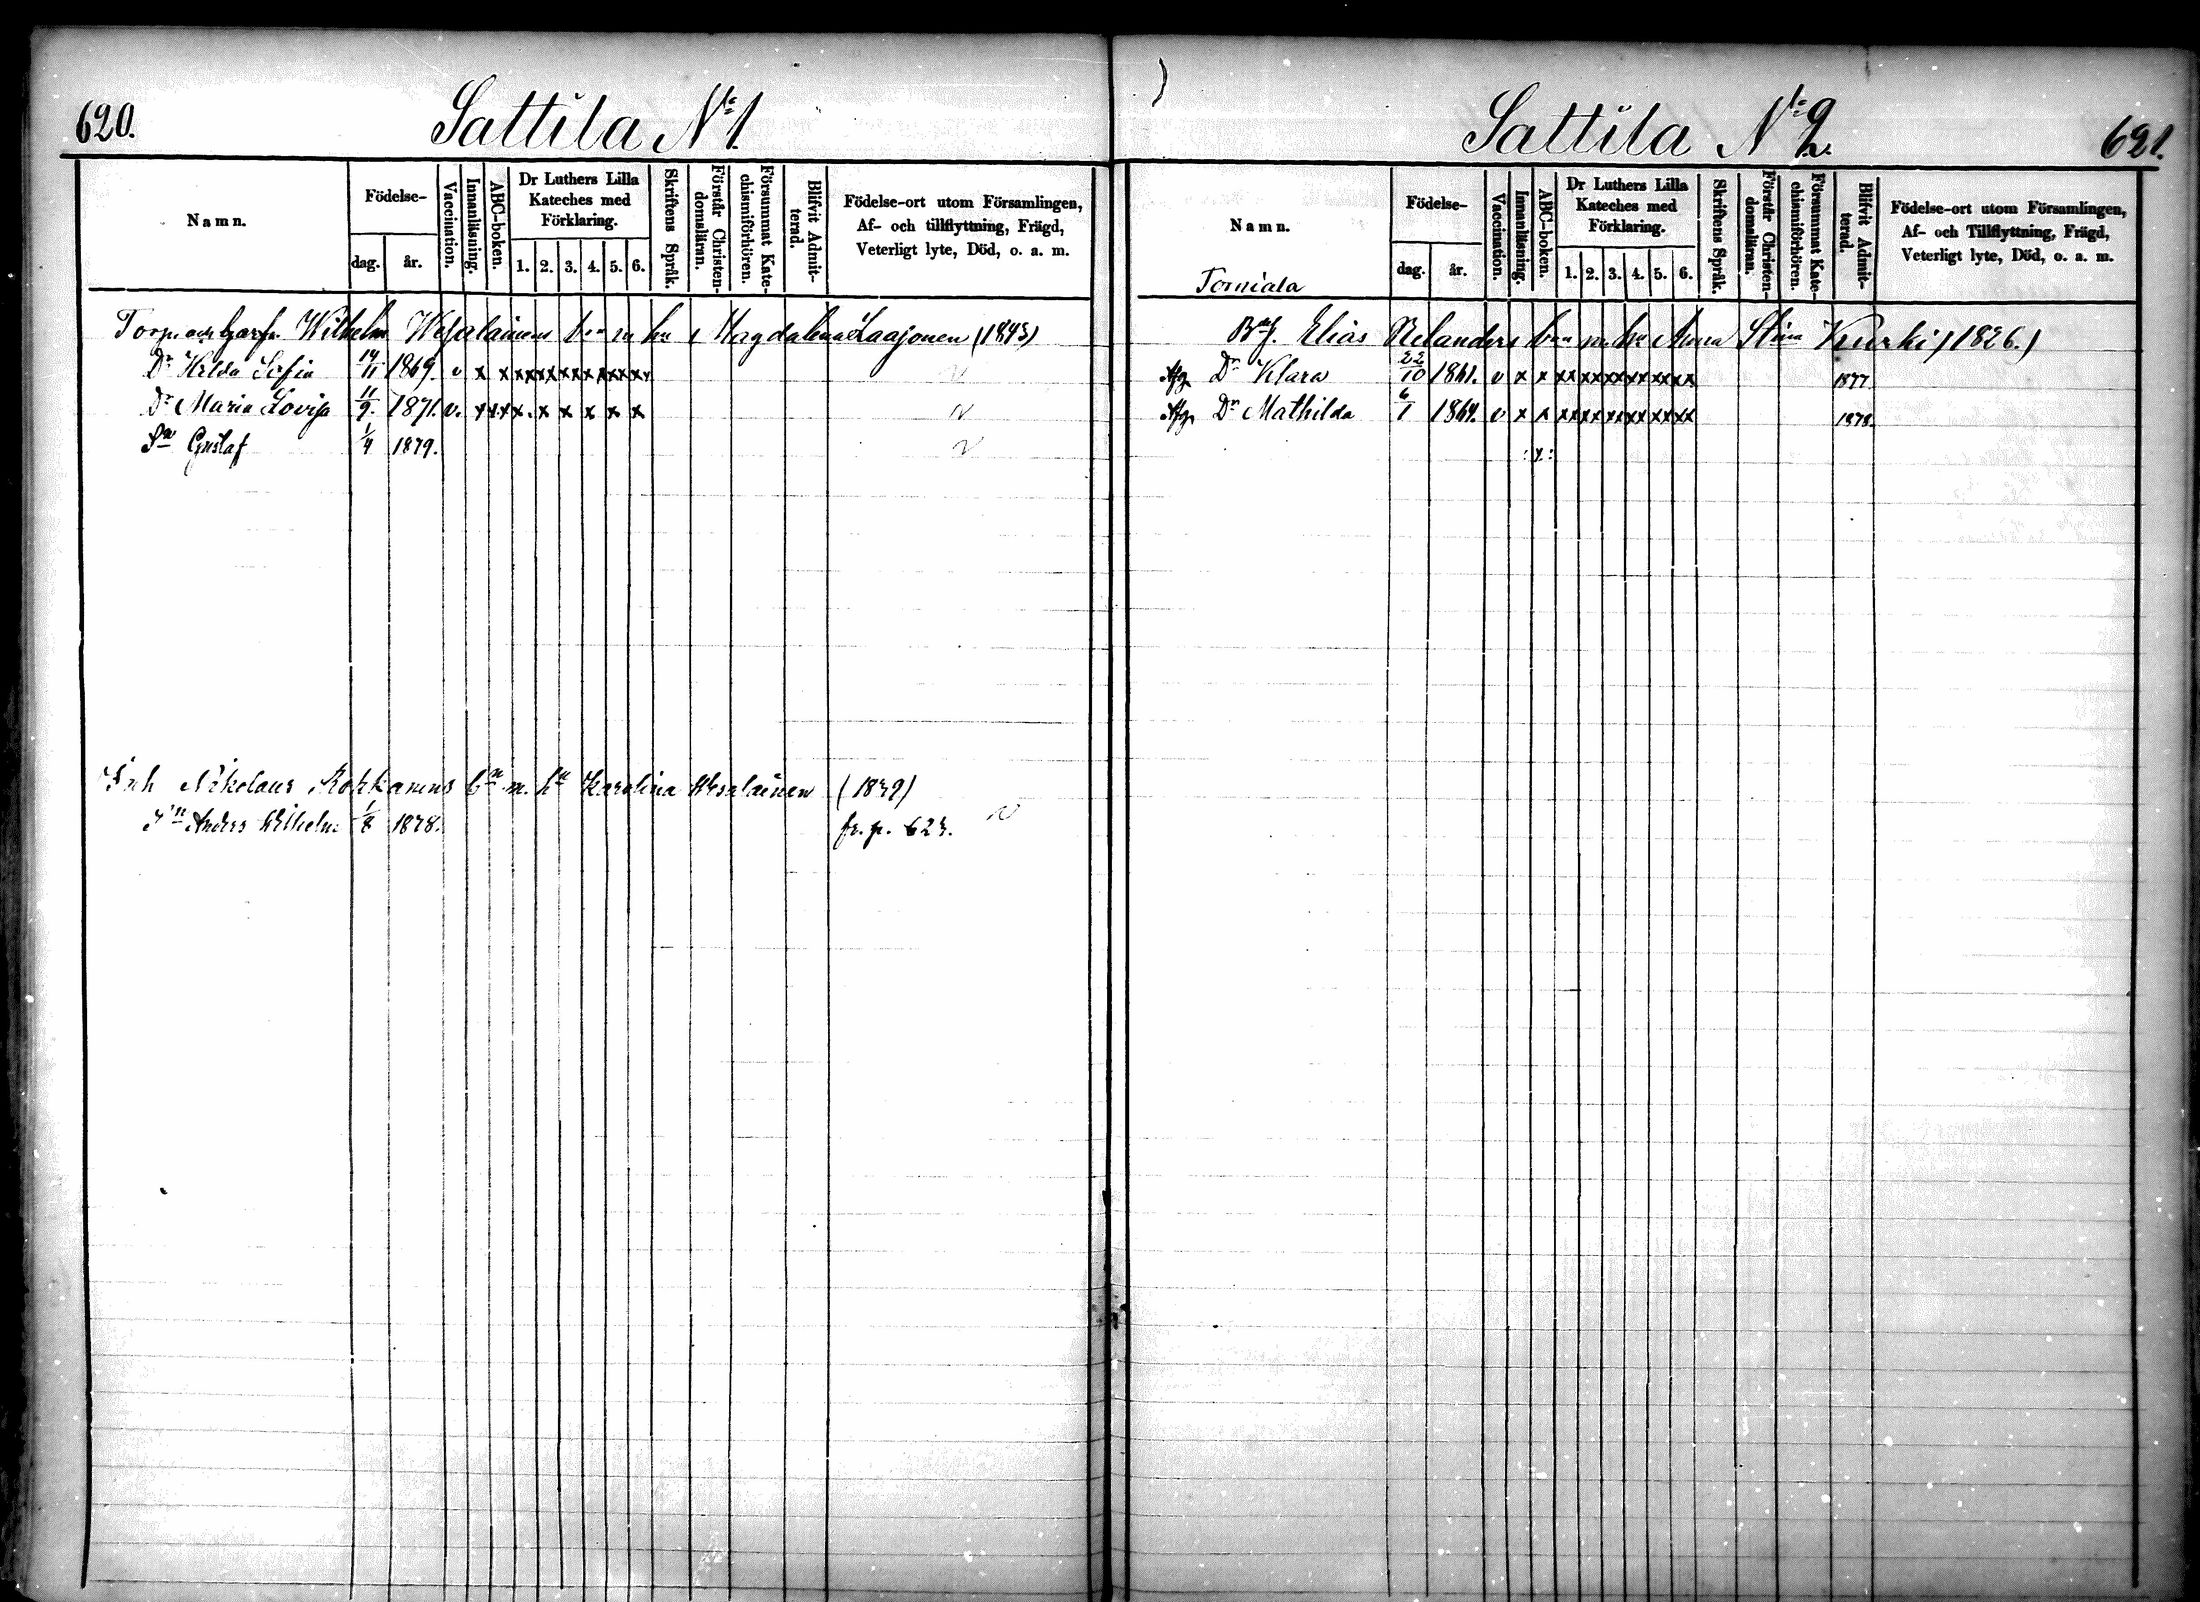 620.
Sattila No 1.
Namn.
Födelse-
dag.
år.
Vaccination.
Innanläsning.
ABC-boken.
Dr Luthers Lilla
Kateches med
Förklaring.
1. 2. 3. 4. 5. 6.
Skriftens Språk.
Förstår Christen-
domsläran.
Försummat Kate-
chismiförhören.
Blifvit Admit-
terad.
Födelse-ort utom Församlingen,
Af- och tillflyttning, Frägd,
Veterligt lyte, Död, o. a. m.
Wilhelm Wesalainens bn m hu Magdalena Laajonen (1843)
Dr Hilda Sofia 14/11 1869. v x x x x x x x x x x x x x x
Dr Maria Lovisa 11/9. 1871. v. x x x x x. x x x x x
Sn Gustaf 1/4 1879.
Inh Nikolaus Kokkonens bn m. hu Karolina Wesalainen (1839)
Sn Anders Wilhelm 1/8 1878. fr. p. 623.
Sattila No 2.
621.
Namn.
Födelse-
dag.
år.
Vaccination.
Innanläsning.
ABC-boken.
Dr Luthers Lilla
Kateches med
Förklaring.
1. 2. 3. 4. 5. 6.
Skriftens Språk.
Förstår Christen-
domsläran.
Försummat Kate-
chismiförhören.
Blifvit Admit-
terad.
Födelse-ort utom Församlingen,
Af- och Tillflyttning, Frägd,
Veterligt lyte, Död, o. a. m.
Torniala
Elias Relanders bn m. hu Anna Stina Kurki (1826.)
Dr Klara 22/10 1861. v x x x x x x x x x x x x x x 1877
Dr Mathilda 6/1 1864. v x x x x x x x x x x x x x x 1878.